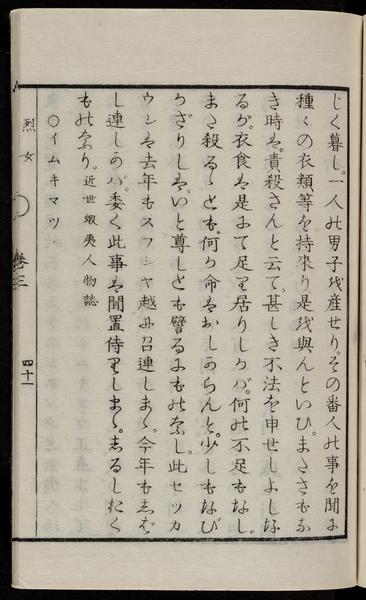 じく暮し。一人の男子を産せり。その番人の事を聞に
種〻の衣類、等を持来り是を與んといひ。またさもな
き時は。責殺さんと云て。甚しき不法を申せしよしな
るが。衣食は是にて足り居りしるが。何の不足もなし。
また殺るゝとも。何か命はおしからんと。少しもなび
かざりしは。いと尊しとも譬るにものなし。此セツカ
ウシは去年もスフシヤ越に召連しまゝ。今年もしば
し連しかば。委く此事は聞置侍りしまゝ。しるしたく
ものなり。近世蝦夷人物誌
○イムキマツ
烈女
巻三
四十一